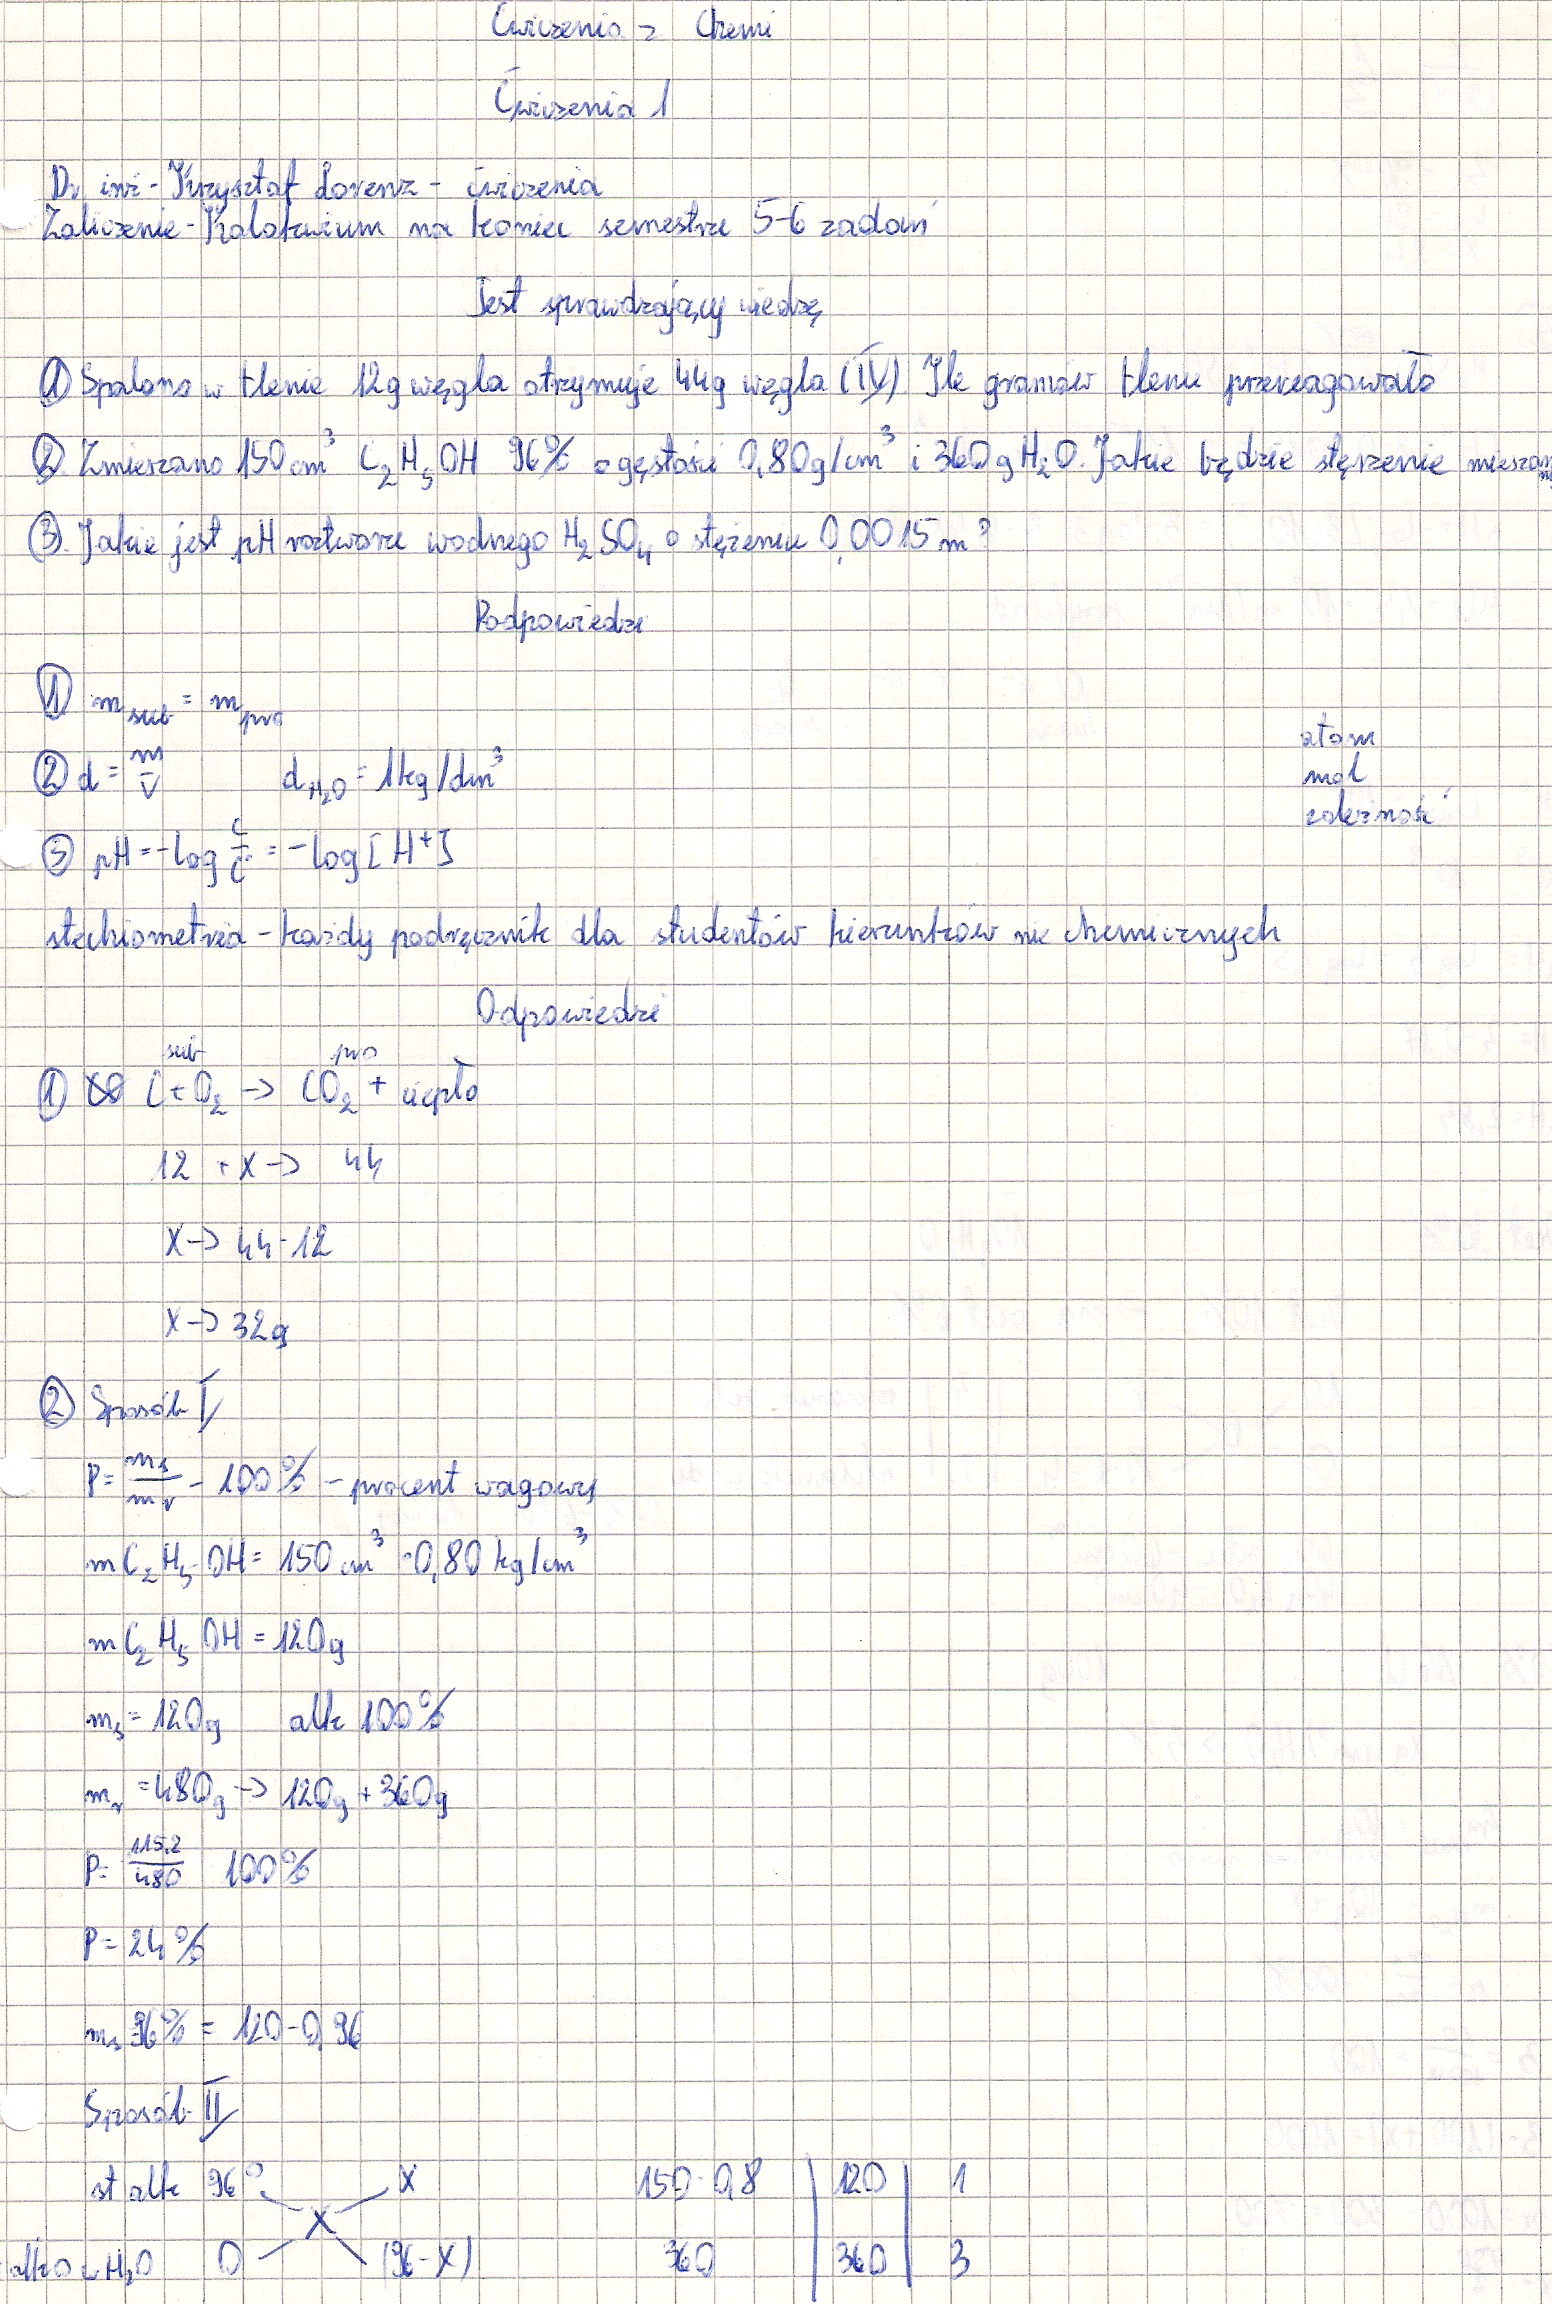 Ćwiczenia z Chemi
Ćwiczenia 1
Dr inż - Krzysztof Lorenz - ćwiczenia
Zaliczenie - Kolokwium na koniec semestru 5-6 zadań
Test sprawdzający wiedzę
① Spalono w tlenie 12g węgla otrzymuje 44g węgla (IV) Ile gramów tlenu przereagowało
② Zmieszano 150cm³ C₂H₅OH 96% o gęstości 0,80g/cm³ i 360g H₂O. Jakie będzie stężenie
③. Jakie jest pH roztworu wodnego H₂SO₄ o stężeniu 0,0015 m?
Podpowiedzi
① m sub = m pro
② d = m/V d H₂O = 1kg/dm³
atom
mol
zależność
③ pH = -log C/C = -log [H⁺]
stechiometria - każdy podręcznik dla studentów kierunków nie chemicznych
Odpowiedzi
sub pro
① C + O₂ → CO₂ + ciepło
12 + X → 44
X → 44-12
X → 32g
② Sposób I
P = ms/mr · 100% - procent wagowy
m C₂H₅OH = 150 cm³ · 0,80 kg/cm³
m C₂H₅OH = 120g
ms = 120g alk 100%
mr = 480g → 120g + 360g
P = 115,2/480 100%
P = 24%
ms 96% = 120 · 0,96
Sposób II
st alk 96° X 150 · 0,8 | 120 | 1
X
alko w H₂O 0 (96-X) 360 | 360 | 3